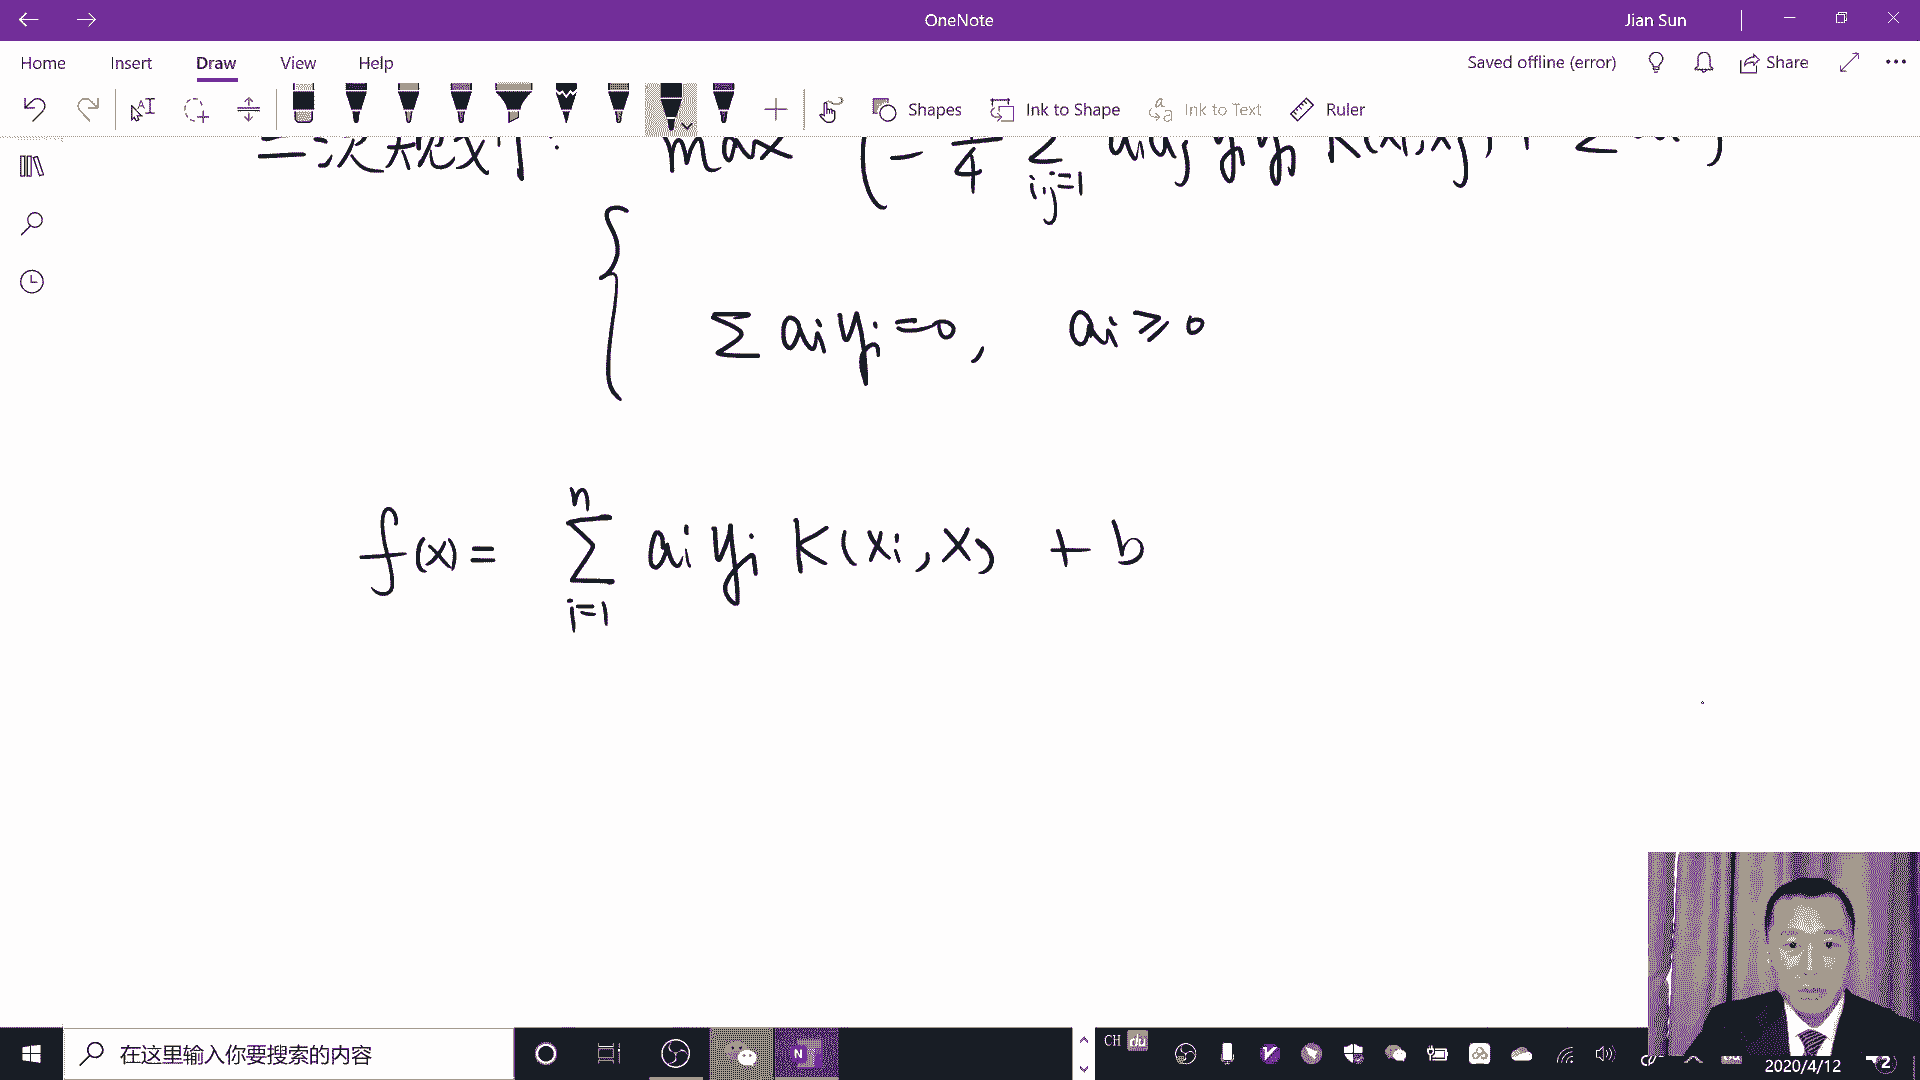 OneNote
Jian Sun
Home Insert Draw View Help
Saved offline (error)
Share
Shapes
Ink to Shape
Ink to Text
Ruler
二次规划: max (-1/4 ∑ aiaj yiyj K(xi,xj) + ∑ ai)
i,j=1
∑ aiyi=0, ai≥0
n
f(x)= ∑ aiyi K(xi,x) + b
i=1
在这里输入你要搜索的内容
CH du
2020/4/12
2